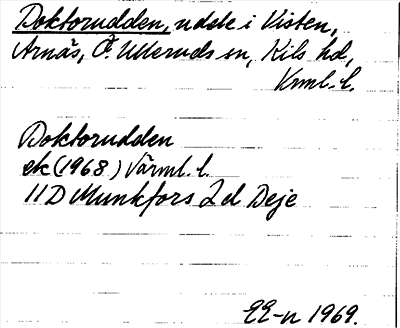 Doktorudden, udde i Visten,
Arnäs, Ö. Ulleruds sn, Kils hd,
Vrml. l.
Doktorudden
ek (1968) Värml. l.
11D Munkfors 2d Deje
EE-n 1969.